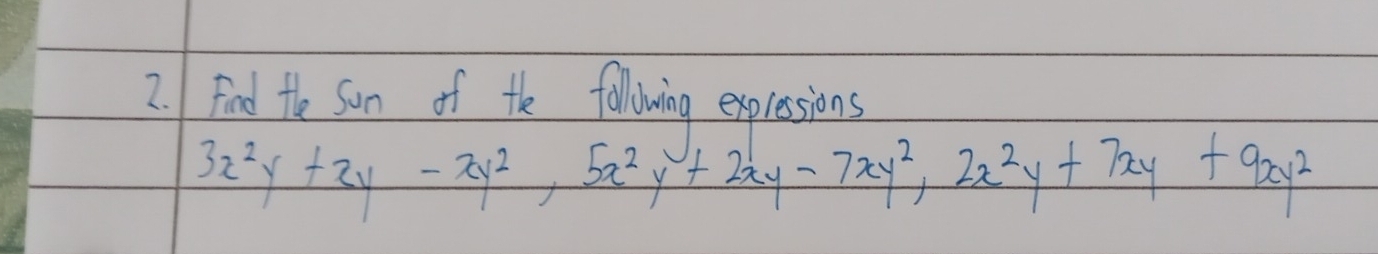 2. Find the sum of the following expressions
3x²y + xy - xy², 5x²y + 2xy - 7xy², 2x²y + 7xy + 9xy²